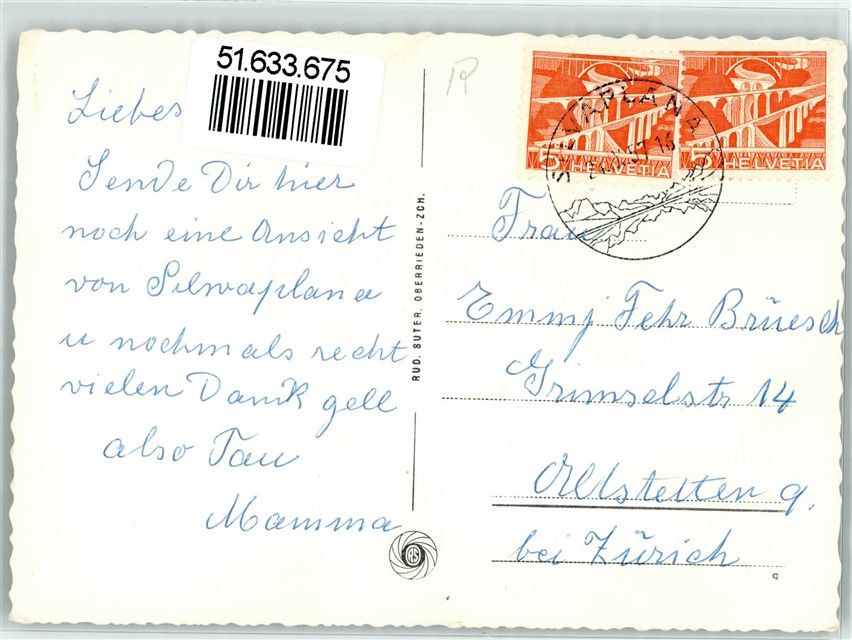 51.633.675
Liebes
Sende Dir hier
noch eine Ansicht
von Silvaplana
u nochmals recht
vielen Dank gell
also Tau
Mamma
RUD. SUTER, OBERRIEDEN-ZCH.
RS
R
5 HELVETIA
5 HELVETIA
SILVAPLANA
57.16
Frau
Emmj Fehr Brüesch
Grimselstr 14
Altstetten 9.
bei Zürich